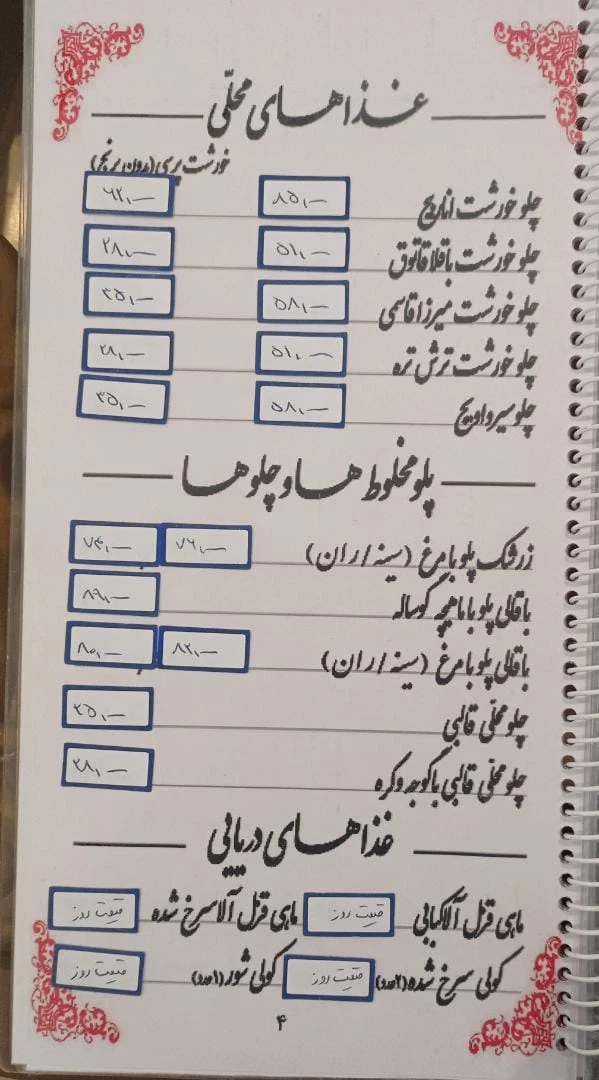 غذاهای محلّی
خورشت پرسی (بدون برنج)
چلو خورشت اناریج ۸۵۰/– ۶۲۰/–
چلو خورشت باقلا قاتوق ۵۱۰/– ۲۸۰/–
چلو خورشت میرزا قاسمی ۵۸۰/– ۳۵۰/–
چلو خورشت ترش تره ۵۱۰/– ۲۸۰/–
چلو سیر و اویج ۵۸۰/– ۳۵۰/–
پلو مخلوط ها و چلوها
زرشک پلو با مرغ (سینه / ران) ۷۶۰/– ۷۴۰/–
باقالی پلو با ماهیچه گوساله ۸۹۰/–
باقالی پلو با مرغ (سینه / ران) ۸۲۰/– ۸۰۰/–
چلو محلّی قالبی ۲۵۰/–
چلو محلّی قالبی با گوجه و کره ۲۸۰/–
غذاهای دریایی
ماهی قزل آلا کبابی قیمت روز ماهی قزل آلا سرخ شده قیمت روز
کولی سرخ شده (۲ عدد) قیمت روز کولی شور (۱ عدد) قیمت روز
۴